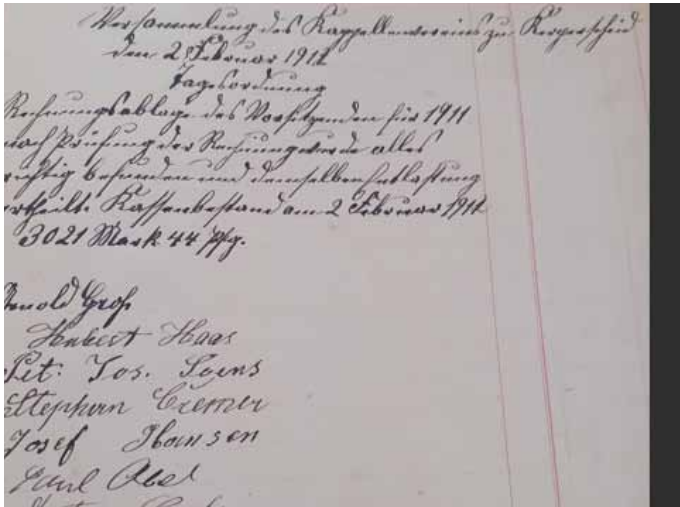 Versammlung des Kappellenvereins zu Kerperscheid
den 2 Februar 1912
Tagesordnung
Rechnungsablage des Vorsitzenden für 1911
nach Prüfung der Rechnung wurde alles
richtig befunden und demselben Entlastung
ertheilt. Kassenbestand am 2 Februar 1912
3021 Mark 44 Pfg.
Arnold Groß
Hubert Haas
Pet: Jos. Soens
Stephan Cremer
Josef Hansen
Paul Abel